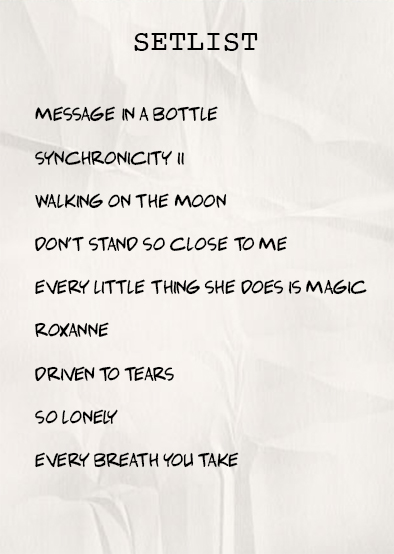 SETLIST
MESSAGE IN A BOTTLE
SYNCHRONICITY II
WALKING ON THE MOON
DON'T STAND SO CLOSE TO ME
EVERY LITTLE THING SHE DOES IS MAGIC
ROXANNE
DRIVEN TO TEARS
SO LONELY
EVERY BREATH YOU TAKE